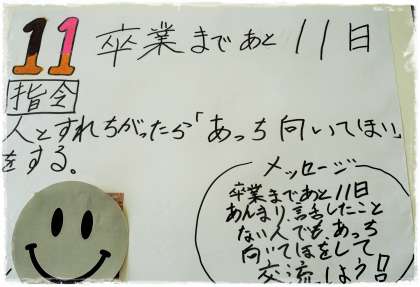 11 卒業まであと11日
指令
人とすれちがったら「あっち向いてほい」
をする。
メッセージ
卒業まであと11日
あんまり、話したこと
ない人でも、あっち
向いてほをして
交流しよう!!